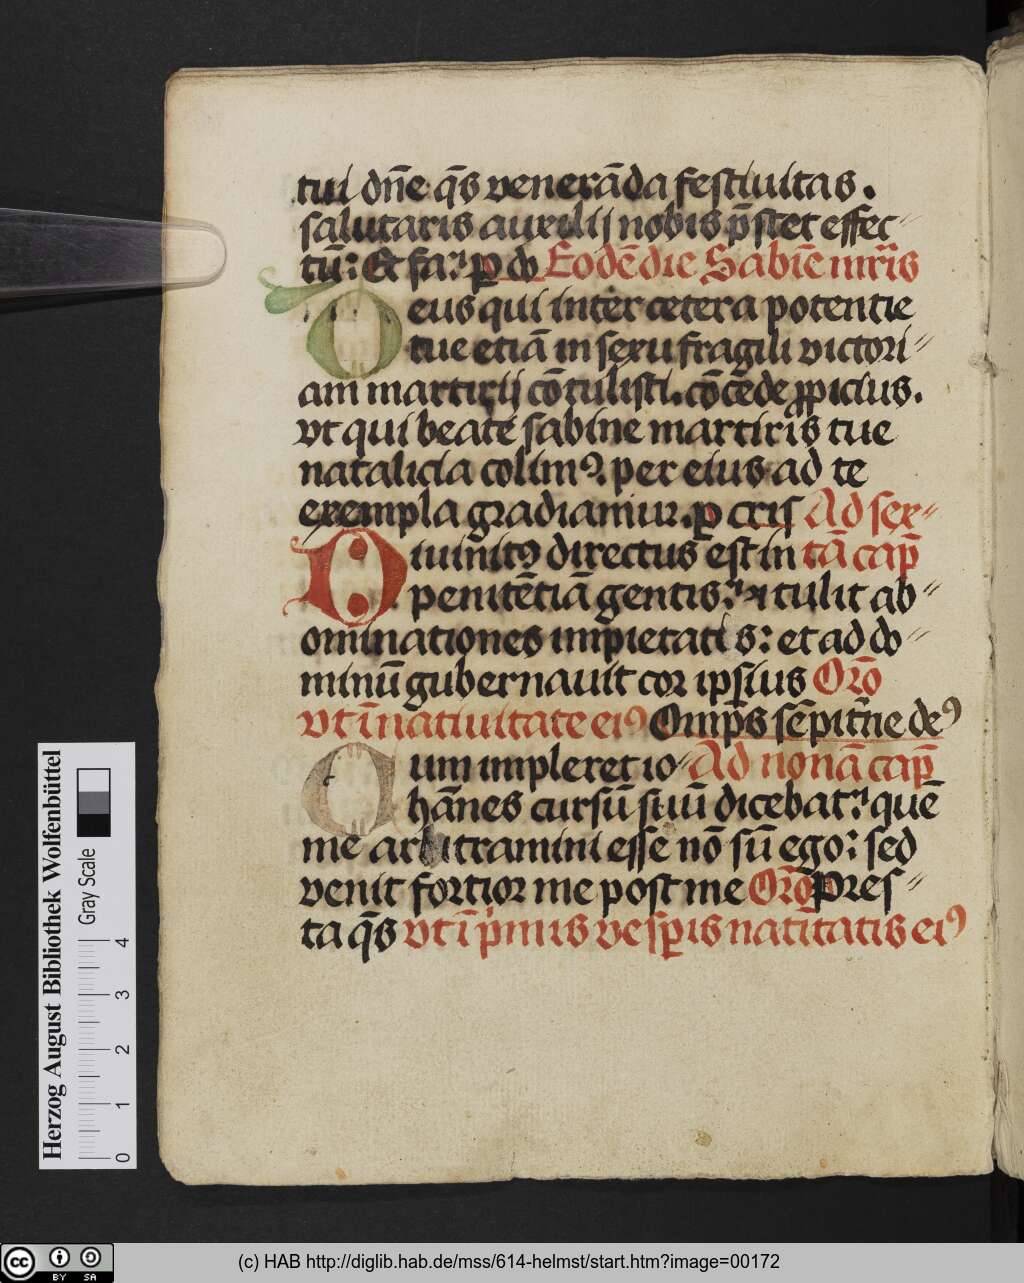 tui dn̄e q̄s venerāda festiuitas.
salutaris auxilij nobis p̄stet effec⸗
tū: Et fa: ꝑ do Eodē die Sabīe mr̄is
Deus qui inter cetera potentie
tue etiā in sexu fragili victori⸗
am martirij cōtulisti. cōcede ꝓpicius.
vt qui beate sabine martiris tue
natalicia colimꝯ. per eius ad te
exempla gradiamur. ꝑ cris Ad sex⸗
Diuinitꝯ directus est in tā cap̄
penitētiā gentis: ⁊ tulit ab⸗
ominationes impietatis: et ad do⸗
minū gubernauit cor ipsius Orō
vt ī natiuitate eiꝯ Omp̄s sēpit̄ne deꝯ
Cum impleret io⸗ Ad nonā cap̄
hānes cursū suū dicebat: quē
me arbitramini esse nō sū ego: sed
venit fortior me post me Orō Pres⸗
ta q̄s vt ī pimis vesp̄is natītatis eiꝯ
Herzog August Bibliothek Wolfenbüttel
Gray Scale
0 1 2 3 4
cc BY SA
(c) HAB http://diglib.hab.de/mss/614-helmst/start.htm?image=00172